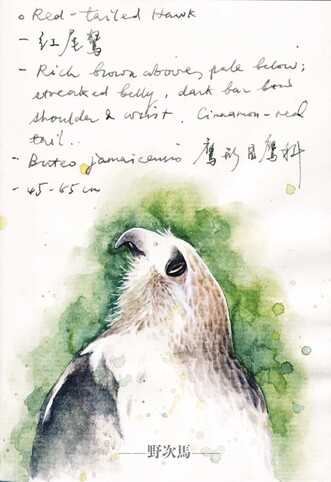 Red-tailed Hawk
- 红尾鵟
- Rich brown above, pale below;
streaked belly, dark bar b/w
shoulder & wrist. Cinnamon-red
tail..
- Buteo jamaicensis 鹰形目鹰科
- 45-65 cm
野次馬